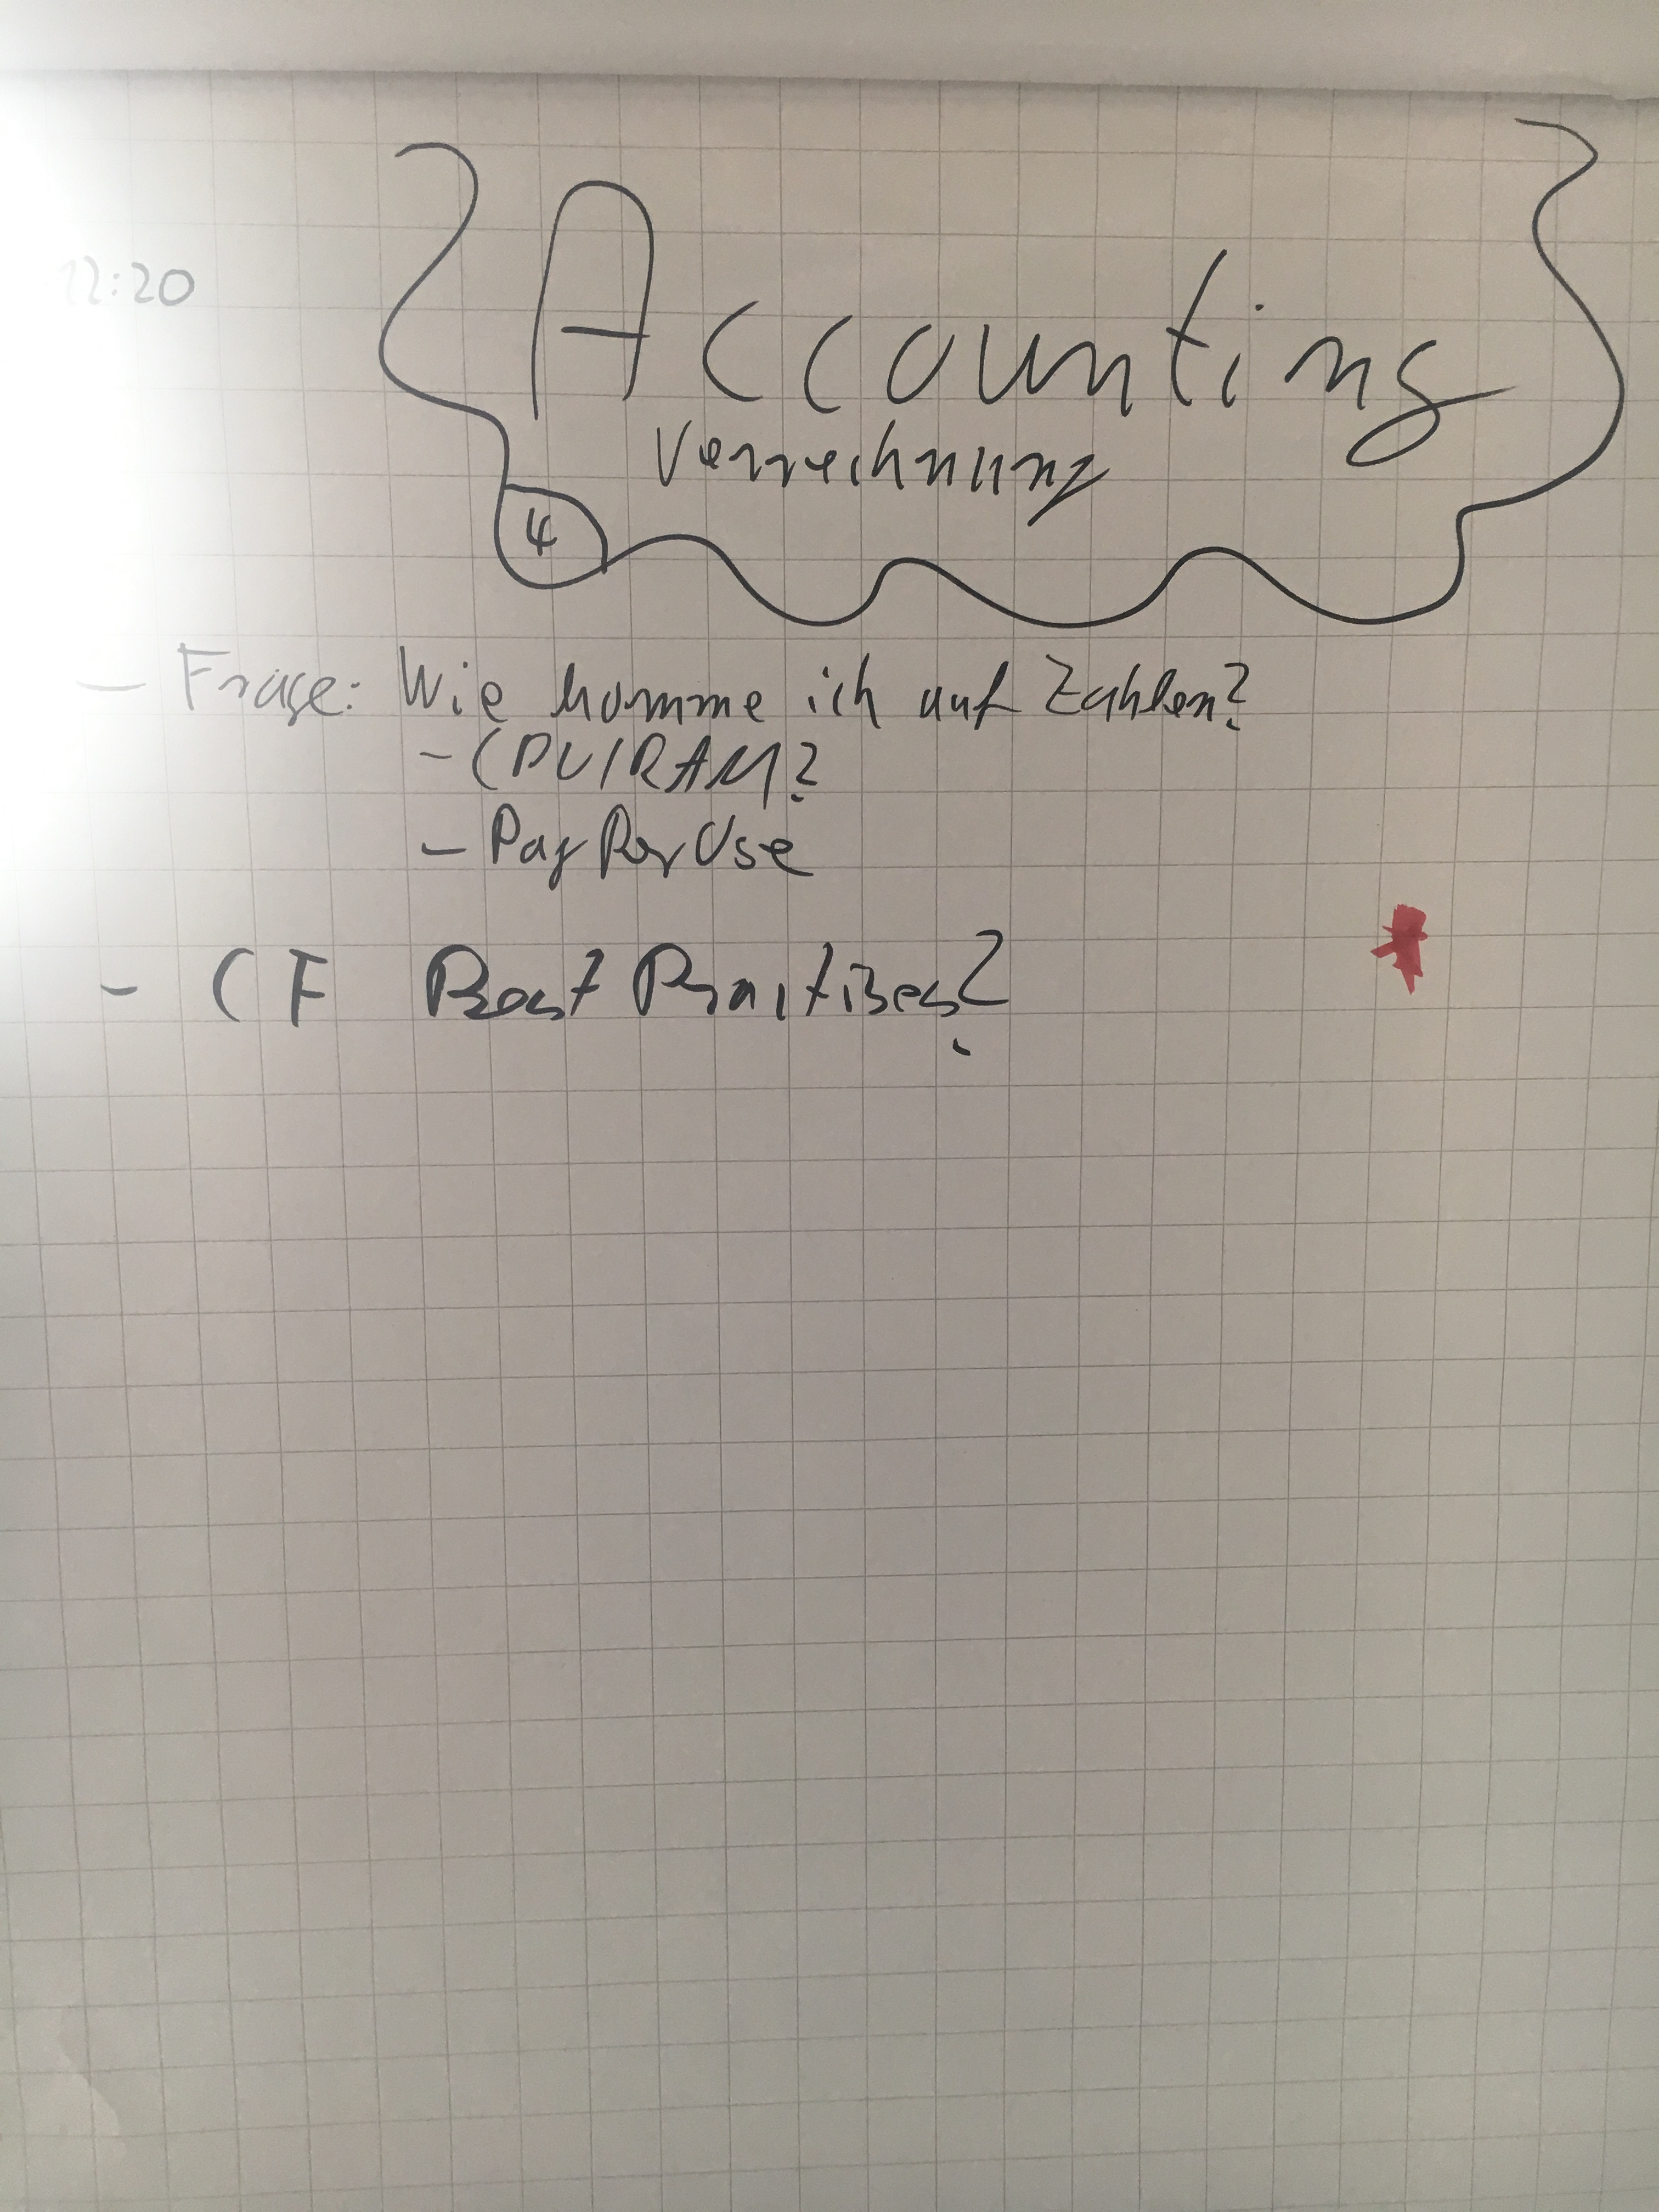 12:20
Accounting
Verrechnung
4
- Frage: Wie komme ich auf Zahlen?
- CPU/RAM?
- Pay Per Use
- CF Best Practises?